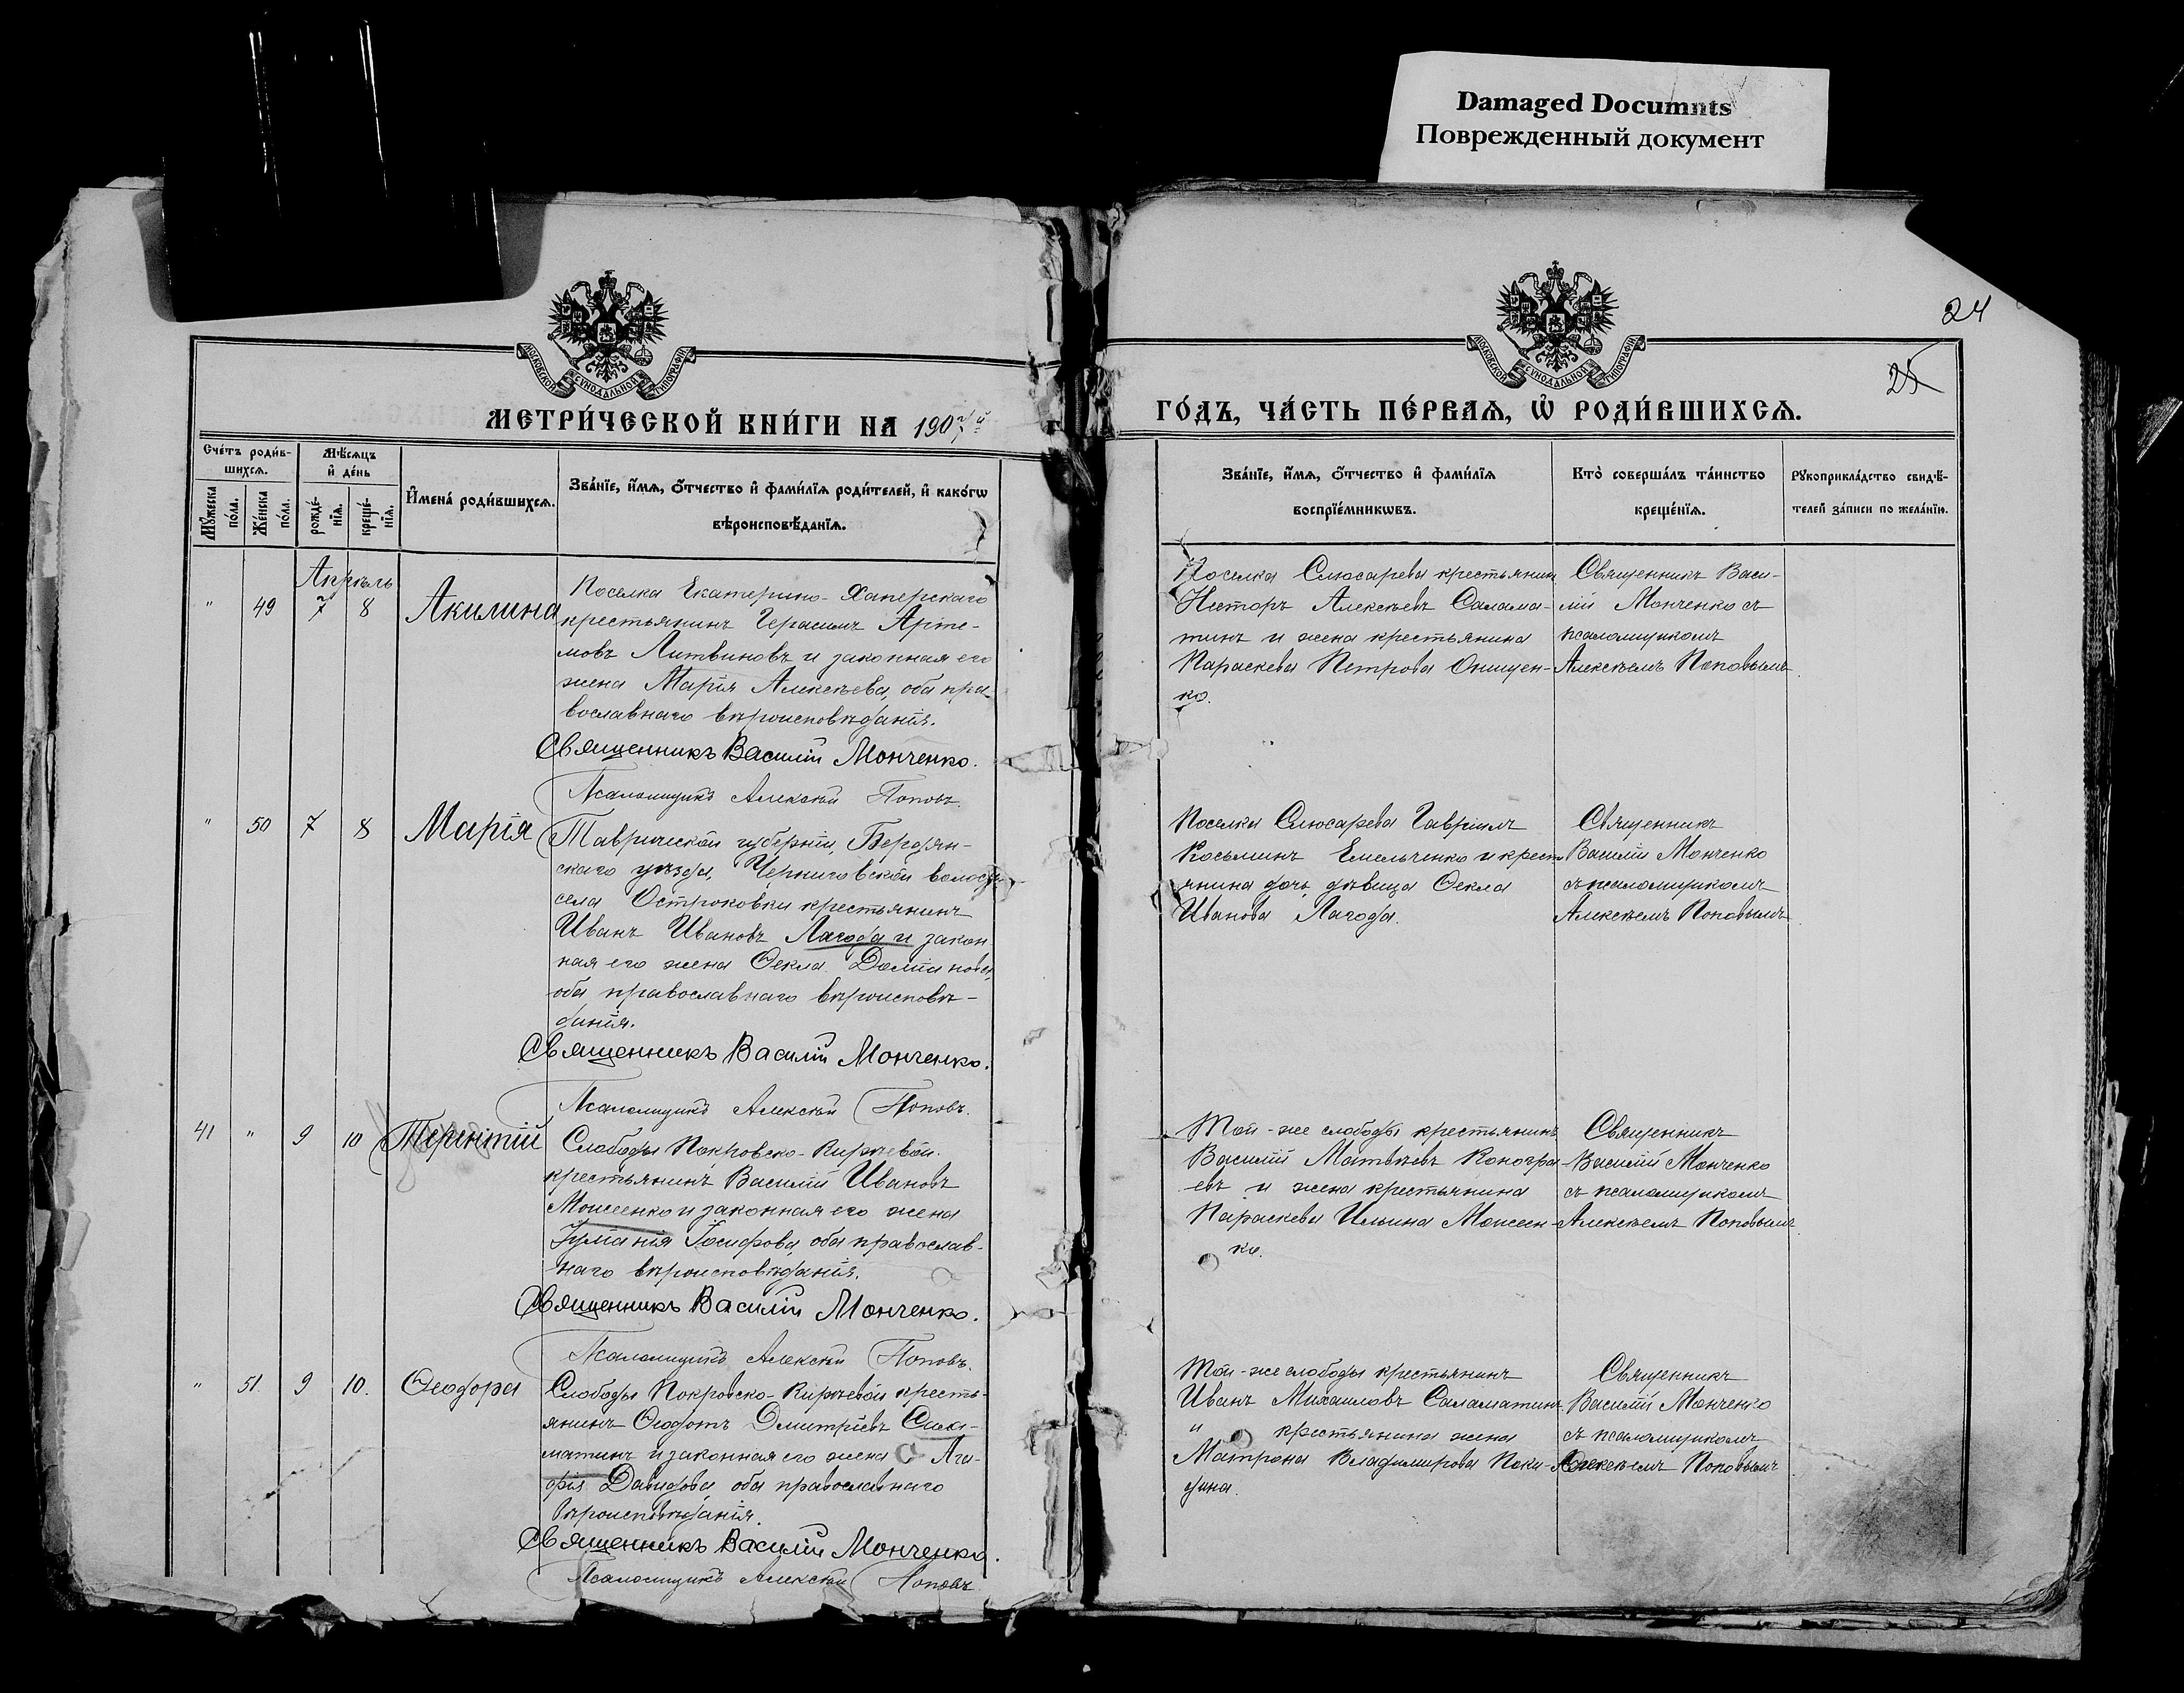 Damaged Documnts
Поврежденный документ
24
25
МОСКОВСКОЙ СѴНОДАЛЬНОЙ ТИПОГРАФІИ
МОСКОВСКОЙ СѴНОДАЛЬНОЙ ТИПОГРАФІИ
МЕТРИ́ЧЕСКОЙ КНИ́ГИ НА 1907й
ГО́ДЪ, ЧА́СТЬ ПЕ́РВАѦ, Ѽ РОДИ́ВШИХСѦ.
Сче́тъ роди́в-
шихсѧ.
Мѣ́сѧцъ
и҆ де́нь
Мꙋ́жеска
по́ла.
Же́нска
по́ла.
рожде́-
нїѧ.
креще́-
нїѧ.
И҆мена̀ роди́вшихсѧ.
Зва́нїе, и҆́мѧ, ѻ҆́тчество и҆ фами́лїѧ роди́телей, и҆ како́гѡ
вѣроисповѣ́данїѧ.
Зва́нїе, и҆́мѧ, ѻ҆́тчество и҆ фами́лїѧ
воспрїе́мникѡвъ.
Кто̀ соверша́лъ та́инство
креще́нїѧ.
Рꙋкоприкла́дство свидѣ́-
телей за́писи по жела́нїю.
Апрѣль
" 49 7 8 Акилина
Поселка Екатерино-Хаперскаго
крестьянинъ Герасимъ Арте-
мовъ Литвиновъ и законная его
жена Марія Алексѣева, оба пра-
вославнаго вѣроисповѣданія.
Священникъ Василій Монченко.
Псаломщикъ Алексѣй Поповъ.
Поселка Слюсарева крестьянин
Несторъ Алексѣевъ Салама-
тинъ и жена крестьянина
Параскева Петрова Онищен-
ко.
Священникъ Васи-
лій Монченко съ
псаломщикомъ
Алексѣемъ Поповымъ.
" 50 7 8 Марія
Таврической губерніи, Бердян-
скаго уѣзда, Черниговской волости
села Остроковки крестьянинъ
Иванъ Ивановъ Лагода и закон
ная его жена Ѳекла Доміанова,
оба православнаго вѣроисповѣ-
данія.
Священникъ Василій Монченко.
Псаломщикъ Алексѣй Поповъ.
Поселка Слюсарева Гавріилъ
Косьминъ Емельченко и кресть
янина дочь, дѣвица Ѳекла
Иванова Лагода.
Священникъ
Василій Монченко
съ псаломщикомъ
Алексѣемъ Поповымъ
41 " 9 10 Терентій
Слободы Покровско-Кирѣевой
крестьянинъ Василій Ивановъ
Моисеенко и законная его жена
Іуліанія Іосифова, оба православ-
наго вѣроисповѣданія.
Священникъ Василій Монченко.
Псаломщикъ Алексѣй Поповъ.
Той-же слободы крестьянинъ
Василій Матвѣевъ Коногра
евъ и жена крестьянина
Параскева Ильина Моисеен-
ко.
Священникъ
Василій Монченко
съ псаломщикомъ
Алексѣемъ Поповымъ.
" 51 9 10. Ѳеодора
Слободы Покровско-Кирѣевой кресть-
янинъ Ѳеодотъ Димитріевъ Сала-
матинъ и законная его жена Ага-
фія Давидова, оба православнаго
вѣроисповѣданія.
Священникъ Василій Монченко.
Псаломщикъ Алексѣй Поповъ
Той-же слободы крестьянинъ
Иванъ Михаиловъ Саламатинъ
и крестьянина жена
Матрона Владимирова Поки-
дина.
Священникъ
Василій Монченко
съ псаломщикомъ
Алексѣемъ Поповымъ.